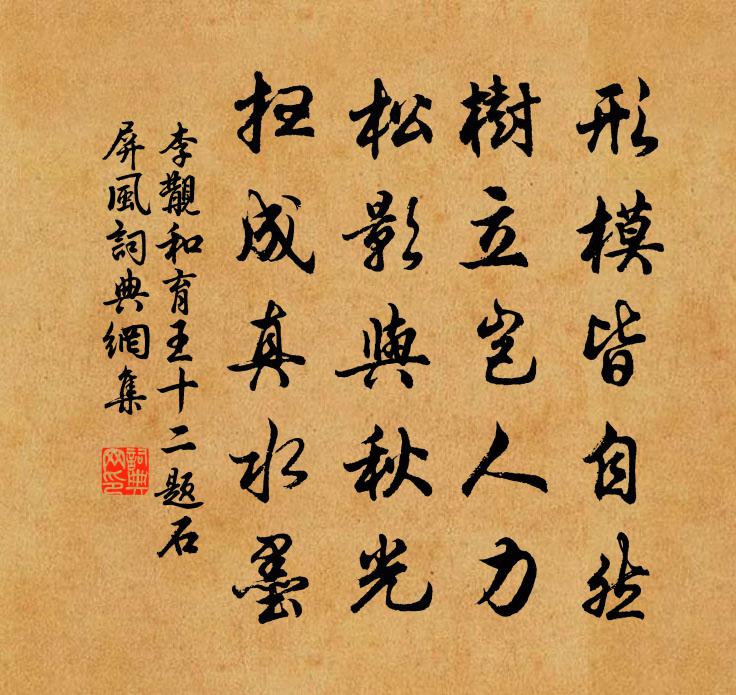 形模皆自然
樹立豈人力
松影與秋光
扭成真水墨
李觀和育王十二題石
屏風詞典網集
詞典網印